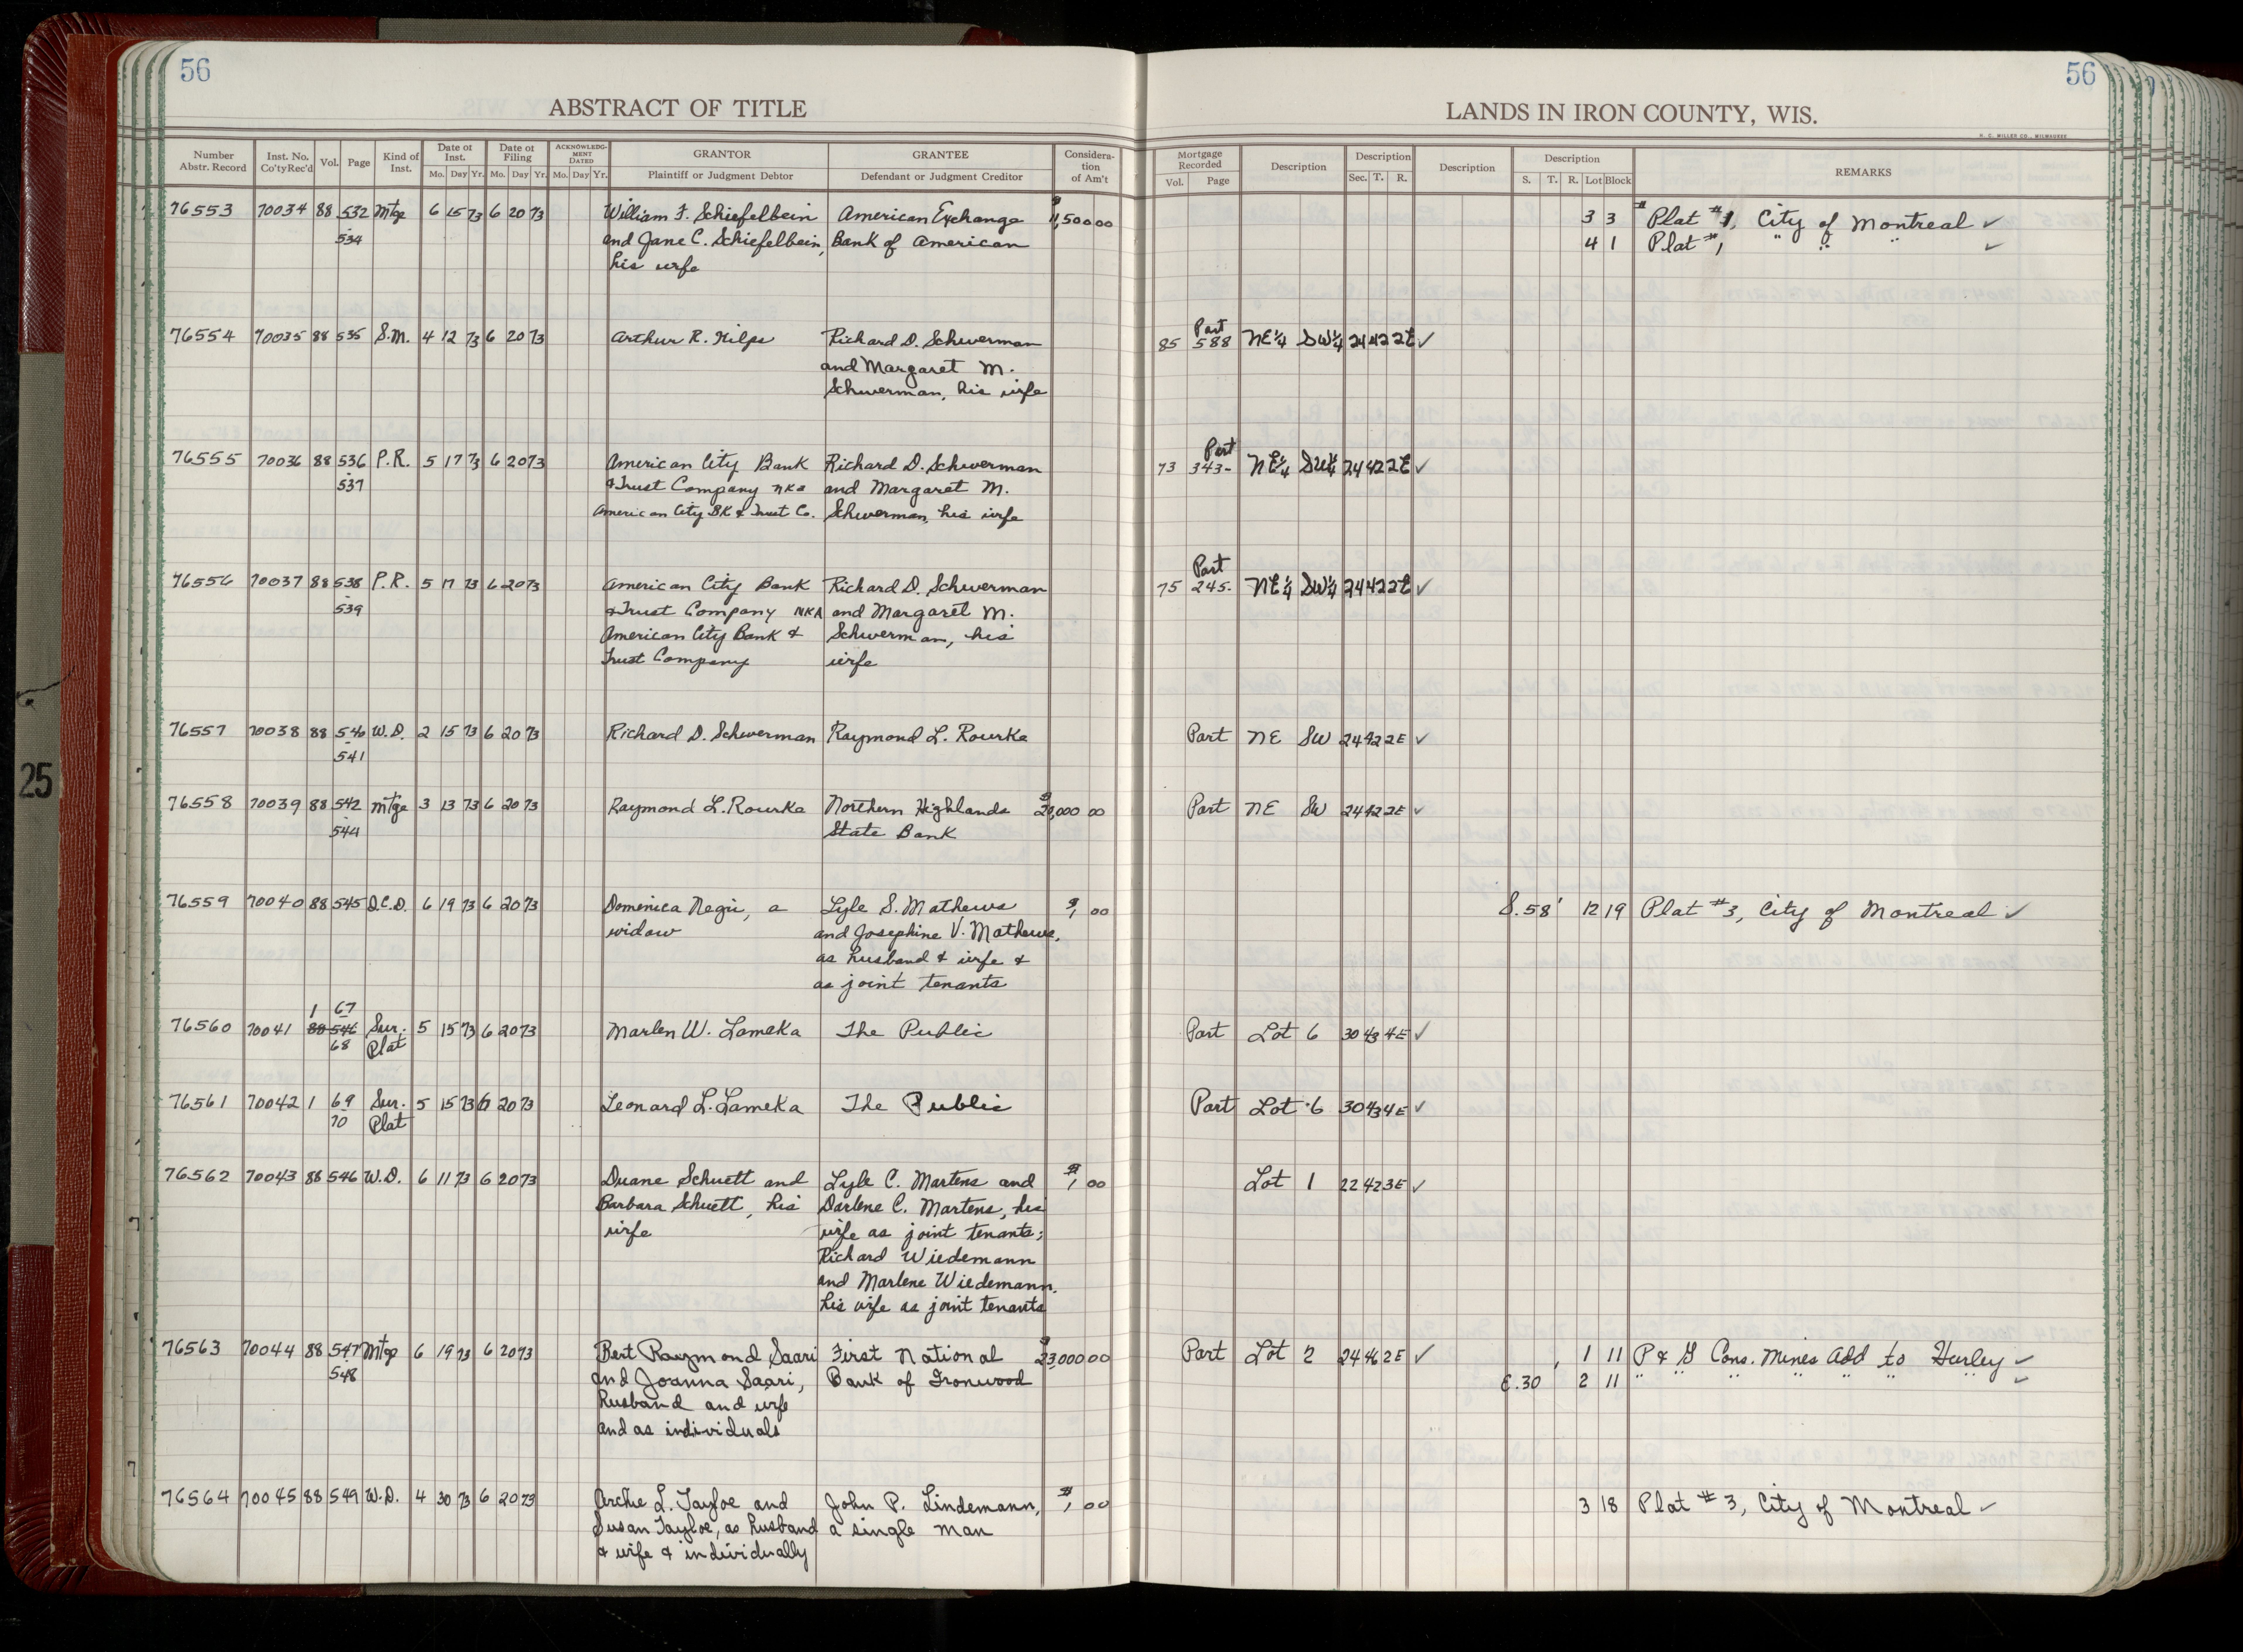 56
56
ABSTRACT OF TITLE
LANDS IN IRON COUNTY, WIS.
H. C. MILLER CO., MILWAUKEE
Number Abstr. Record Inst. No. Co'tyRec'd Vol. Page Kind of Inst. Date of Inst. Mo. Day Yr. Date of Filing Mo. Day Yr. ACKNOWLEDGMENT DATED Mo. Day Yr. GRANTOR Plaintiff or Judgment Debtor GRANTEE Defendant or Judgment Creditor Consideration of Am't
Mortgage Recorded Vol. Page Description Description Sec. T. R. Description Description S. T. R. Lot Block REMARKS
76553 70034 88 532 Mtge 6 15 73 6 20 73 William F. Schiefelbein American Exchange 3 3 Plat #1, City of Montreal ✓
534 and Jane C. Schiefelbein, Bank of American 4 1 Plat #1 " " " ✓
his wife
76554 70035 88 535 S.M. 4 12 73 6 20 73 Arthur R. Hilps Richard D. Schwerman 85 Part 588 NE¼ SW¼ 24 42 2E ✓
and Margaret M.
Schwerman, his wife
76555 70036 88 536 P.R. 5 17 73 6 20 73 American City Bank Richard D. Schwerman 73 Part 343- NE¼ SW¼ 24 42 2E ✓
537 & Trust Company NKA and Margaret M.
American City BK & Trust Co. Schwerman, his wife
76556 70037 88 538 P.R. 5 17 73 6 20 73 American City Bank Richard D. Schwerman 75 Part 245. NE¼ SW¼ 24 42 2E ✓
539 & Trust Company NKA and Margaret M.
American City Bank & Schwerman, his
Trust Company wife
76557 70038 88 540 W.D. 2 15 73 6 20 73 Richard D. Schwerman Raymond L. Rourke Part NE SW 24 42 2E ✓
541
76558 70039 88 542 Mtge 3 13 73 6 20 73 Raymond L. Rourke Northern Highlands Part NE SW 24 42 2E ✓
544 State Bank
76559 70040 88 545 Q.C.D. 6 19 73 6 20 73 Domenica Negri, a Lyle S. Mathews $1 00 S.58' 12 19 Plat #3, City of Montreal ✓
widow and Josephine V. Mathews,
as husband & wife &
as joint tenants
1 67
76560 70041 88 546 Sur. 5 15 73 6 20 73 Marlen W. Lameka The Public Part Lot 6 30 43 4E ✓
68 Plat
76561 70042 1 69 Sur. 5 15 73 6 20 73 Leonard L. Lameka The Public Part Lot 6 30 43 4E ✓
70 Plat
76562 70043 88 546 W.D. 6 11 73 6 20 73 Duane Schuett and Lyle C. Martens and $1 00 Lot 1 22 42 3E ✓
Barbara Schuett, his Darlene C. Martens, his
wife wife as joint tenants;
Richard Wiedemann
and Marlene Wiedemann,
his wife as joint tenants
76563 70044 88 547 Mtge 6 19 73 6 20 73 Bert Raymond Saari First National $23,000 00 Part Lot 2 24 46 2E ✓ 1 11 P & G Cons. Mines Add to Hurley ✓
548 and Joanna Saari, Bank of Ironwood E.30 2 11 " " " " " " " ✓
husband and wife
and as individuals
76564 70045 88 549 W.D. 4 30 73 6 20 73 Archie L. Tayloe and John P. Lindemann, $1 00 3 18 Plat #3, City of Montreal ✓
Susan Tayloe, as husband a single man
& wife & individually
25